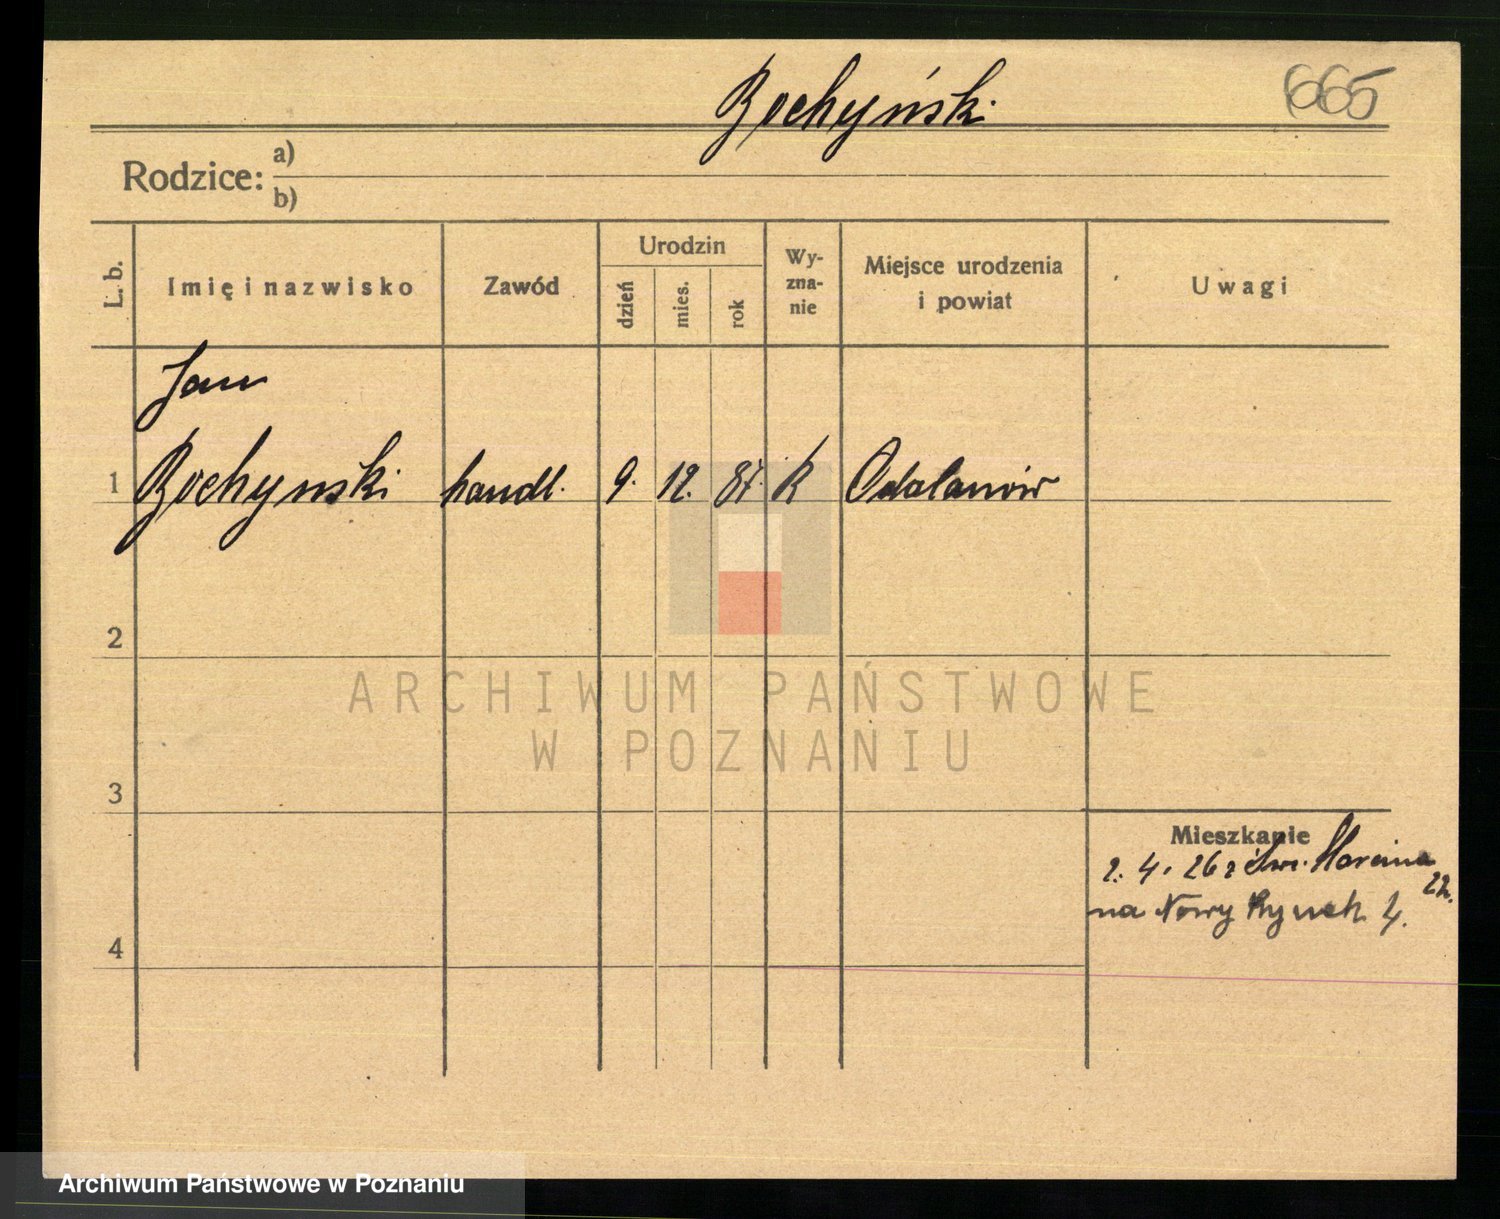 Bochyński.
665
Rodzice: a)
b)
L. b.
Imię i nazwisko
Zawód
Urodzin
dzień
mies.
rok
Wy-
zna-
nie
Miejsce urodzenia
i powiat
Uwagi
Jan
1 Bochynski handl. 9. 12. 87. R Odolanów
2
3
4
Mieszkanie
2. 4. 26 z Św. Marcina
22.
na Nowy Rynek 4.
ARCHIWUM PAŃSTWOWE
W POZNANIU
Archiwum Państwowe w Poznaniu